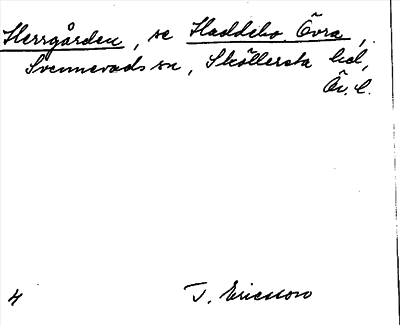 Herrgården, se Haddebo Övra,
Svennevads sn, Sköllersta hd,
Ör. l.
4 T. Ericsson